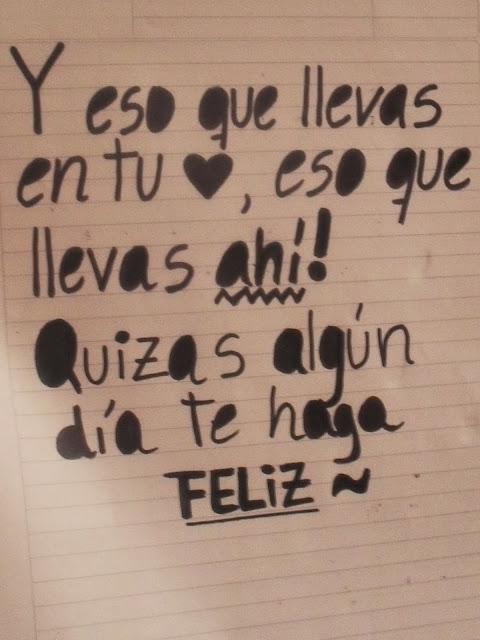 Y eso que llevas
en tu ♥, eso que
llevas ahí!
Quizas algún
día te haga
FELiZ ~